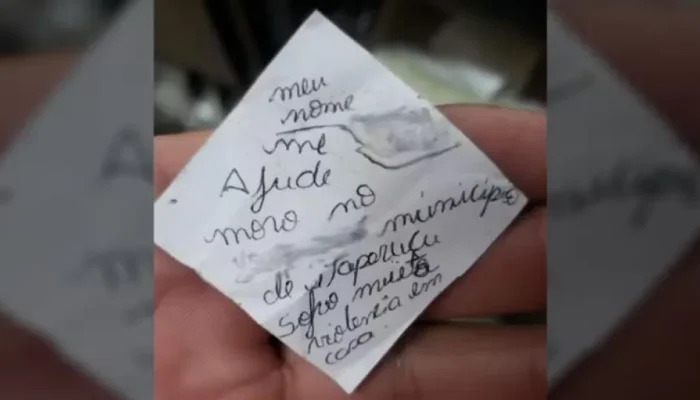 meu
nome
me
Ajude
moro no
município
de itaporucu
sofro muito
violencia em
casa.